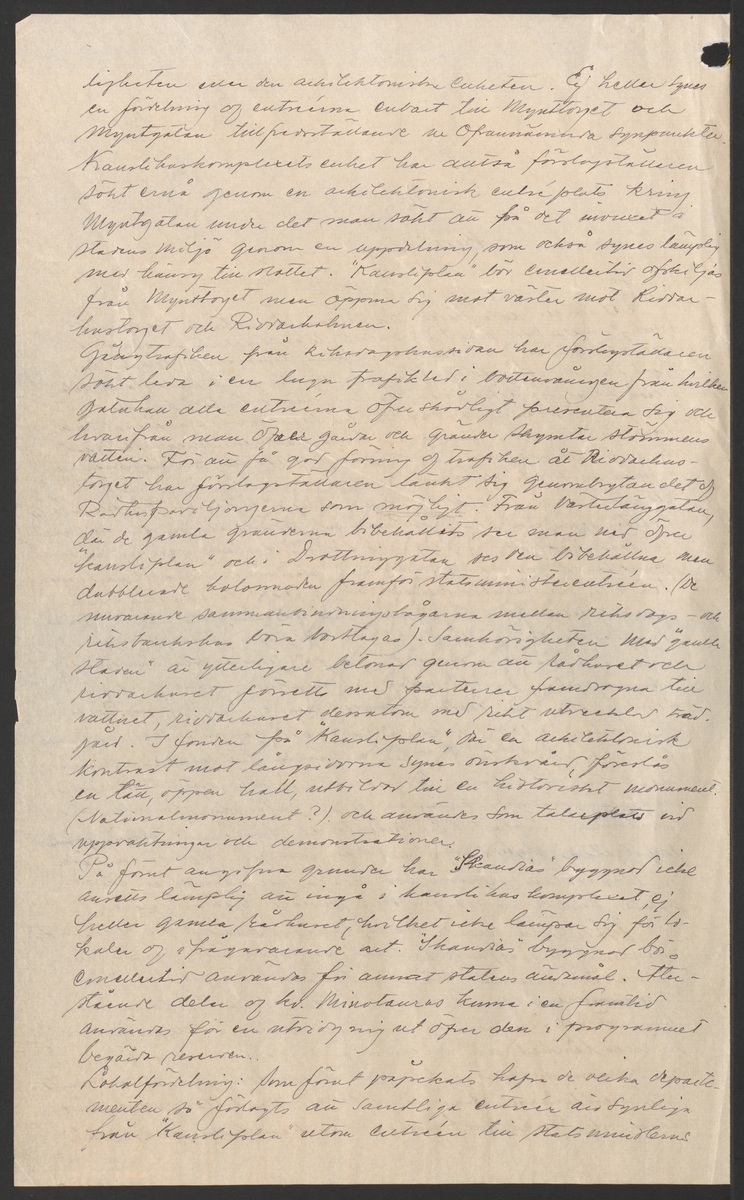 ligheten eller den arkitektoniska enheten. Ej heller synes
en fördelning af entréerna enbart till Mynttorget och
Myntgatan tillfredsställande ur ofvannämnda synpunkter.
Kanslihuskomplexets enhet har alltså förslagställaren
sökt ernå genom en arkitektonisk entréplats kring
Myntgatan under det man sökt att få det invuxet i
stadens miljö genom en uppdelning, som också synes lämplig
med hänsyn till slottet. "Kansliplan" bör emellertid afskiljas
från Mynttorget men öppna sig mot väster mot Riddar-
hustorget och Riddarholmen.
Gångtrafiken från Riksdagshussidan har förslagställaren
sökt leda i en lugn trafikled i bottenvåningen från hvilken
gatuhall alla entréerna öfverskådligt presentera sig och
hvarifrån man öfver gårdar och gränder skymtar strömmens
vatten. För att få god föring af trafiken åt Riddarhus-
torget har förslagställaren tänkt sig genombrytandet af
Rådhuspaviljongerna som möjligt. Från Västerlånggatan,
där de gamla gränderna bibehållits ser man ned öfver
"Kansliplan" och i Drottninggatan ses den bibehållna men
dubblerade kolonnaden framför statsministerentréen. (De
nuvarande sammanbindningsbågarna mellan riksdags- och
riksbankshus böra borttagas). Samhörigheten med "gamla
staden" är ytterligare betonad genom att rådhuset och
riddarhuset försetts med parterrer framdragna till
vattnet, riddarhuset dessutom med rikt utvecklad träd-
gård. I fonden på "Kansliplan", där en arkitektonisk
kontrast mot långsidorna synes önskvärd, föreslås
en lätt, öppen hall, utbildad till en historiskt monument.
(Nationalmonument?) och användes som talareplats vid
uppvaktningar och demonstrationer.
På förut angifna grunder har "Skandias" byggnad icke
ansetts lämplig att ingå i kanslihuskomplexet, ej
heller gamla rådhuset, hvilket icke lämpar sig för lo-
kaler af ifrågavarande art. "Skandias" byggnad bör
emellertid användas för annat statens ändamål. Åter-
stående delar af kv. Minotaurus kunna i en framtid
användas för en utvidgning ut öfver den i programmet
begärda reserven.
Lokalfördelning: Som förut påpekats hafva de olika departe-
menten så förlagts att samtliga entréer äro synliga
från "Kansliplan" utom entréen till statsministerns